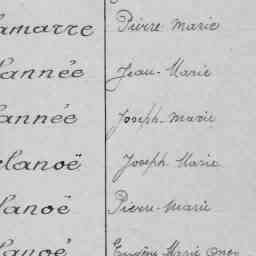 amarre Pierre Marie
lannée Jean-Marie
lannée Joseph-Marie
lanoë Joseph Marie
lanoë Pierre-Marie
lanoë Eugène Marie